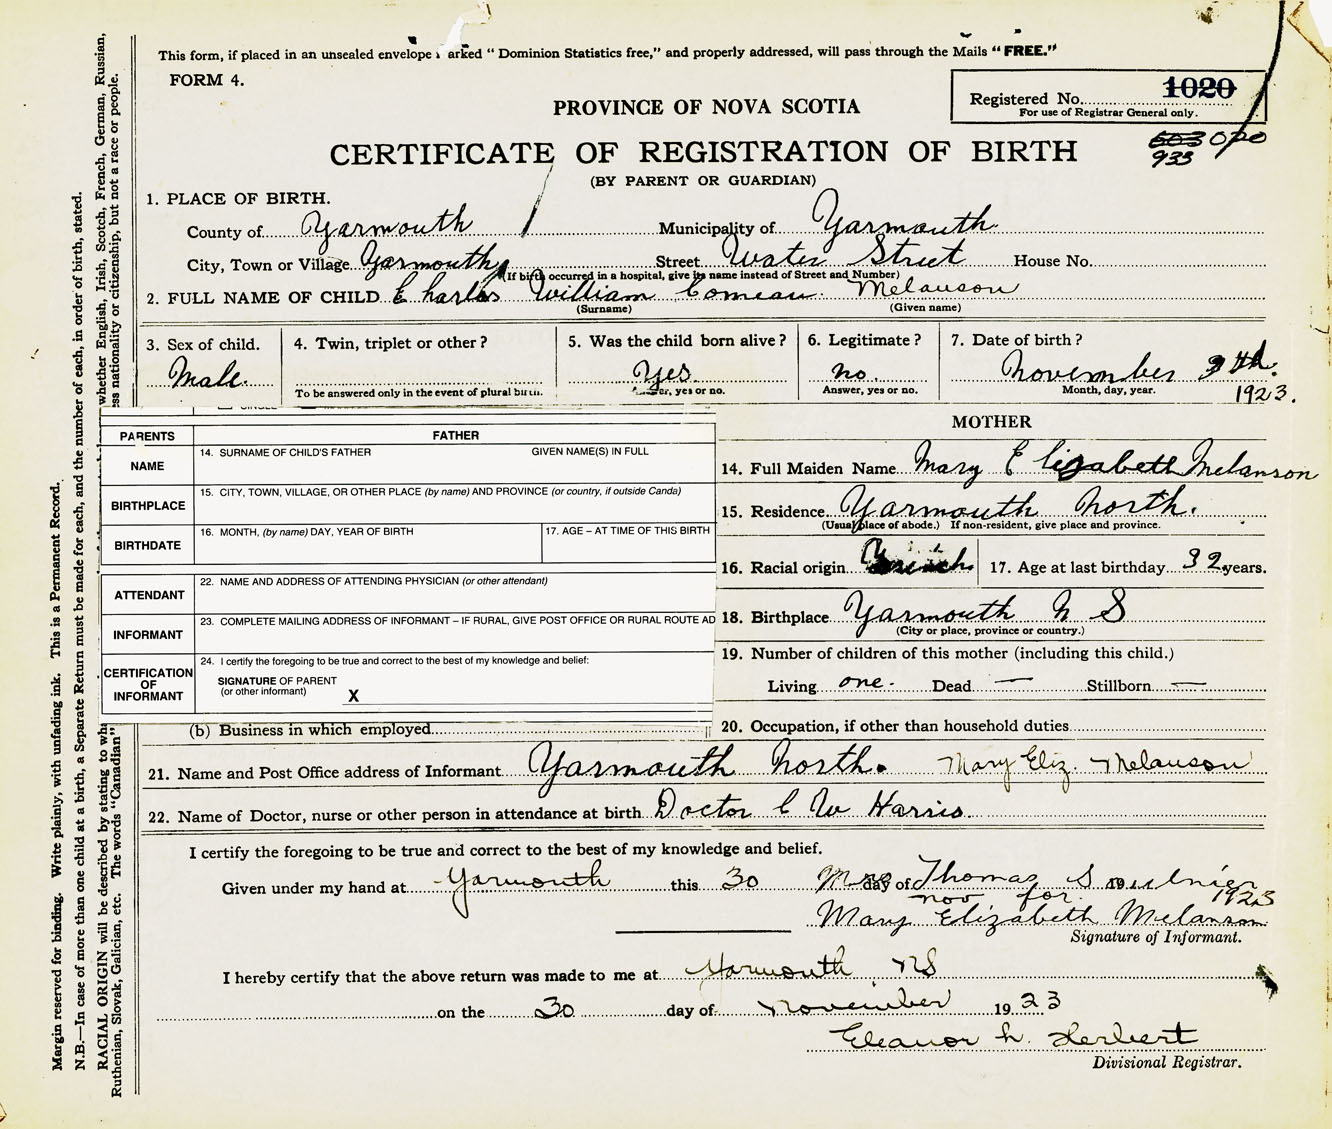 This form, if placed in an unsealed envelope arked "Dominion Statistics free," and properly addressed, will pass through the Mails "FREE."
FORM 4.
Registered No. 1020
For use of Registrar General only.
PROVINCE OF NOVA SCOTIA
CERTIFICATE OF REGISTRATION OF BIRTH
933
(BY PARENT OR GUARDIAN)
1. PLACE OF BIRTH.
County of Yarmouth Municipality of Yarmouth
City, Town or Village Yarmouth Street Water Street House No.
(If birth occurred in a hospital, give its name instead of Street and Number)
2. FULL NAME OF CHILD Charles William Comeau Melanson
(Surname) (Given name)
3. Sex of child. 4. Twin, triplet or other? 5. Was the child born alive? 6. Legitimate? 7. Date of birth?
Male. Yes no. November 9th.
To be answered only in the event of plural birth. er, yes or no. Answer, yes or no. Month, day, year. 1923.
PARENTS FATHER
NAME 14. SURNAME OF CHILD'S FATHER GIVEN NAME(S) IN FULL
BIRTHPLACE 15. CITY, TOWN, VILLAGE, OR OTHER PLACE (by name) AND PROVINCE (or country, if outside Canda)
BIRTHDATE 16. MONTH, (by name) DAY, YEAR OF BIRTH 17. AGE – AT TIME OF THIS BIRTH
ATTENDANT 22. NAME AND ADDRESS OF ATTENDING PHYSICIAN (or other attendant)
INFORMANT 23. COMPLETE MAILING ADDRESS OF INFORMANT – IF RURAL, GIVE POST OFFICE OR RURAL ROUTE AD
CERTIFICATION OF INFORMANT 24. I certify the foregoing to be true and correct to the best of my knowledge and belief:
SIGNATURE OF PARENT
(or other informant) X
(b) Business in which employed
MOTHER
14. Full Maiden Name Mary Elizabeth Melanson
15. Residence Yarmouth North.
(Usual place of abode.) If non-resident, give place and province.
16. Racial origin 17. Age at last birthday 32 years.
18. Birthplace Yarmouth N S
(City or place, province or country.)
19. Number of children of this mother (including this child.)
Living one. Dead — Stillborn —
20. Occupation, if other than household duties
21. Name and Post Office address of Informant Yarmouth North. Mary Eliz. Melanson
22. Name of Doctor, nurse or other person in attendance at birth Doctor C W Harris.
I certify the foregoing to be true and correct to the best of my knowledge and belief.
Given under my hand at Yarmouth this 30 day of Mrs Thomas S
nov for 1923
Mary Elizabeth Melanson
Signature of Informant.
I hereby certify that the above return was made to me at Yarmouth NS
on the 30 day of November 1923
Eleanor h. Herbert
Divisional Registrar.
Margin reserved for binding. Write plainly, with unfading ink. This is a Permanent Record.
N.B.—In case of more than one child at a birth, a Separate Return must be made for each, and the number of each, in order of birth, stated.
RACIAL ORIGIN will be described by stating to wh whether English, Irish, Scotch, French, German, Russian,
Ruthenian, Slovak, Galician, etc. The words "Canadian" ess nationality or citizenship, but not a race or people.